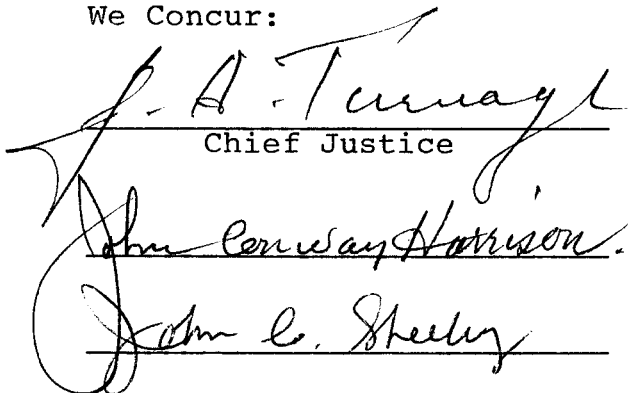 We Concur:
J. A. Turnage
Chief Justice
John Conway Harrison.
John C. Sheehy